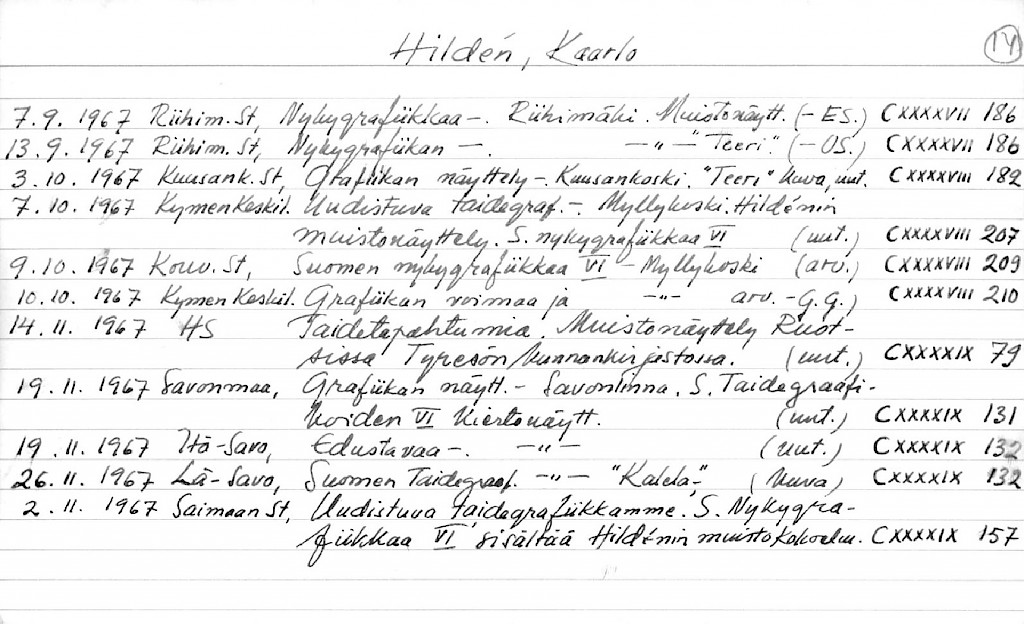 Hildén, Kaarlo 14
7.9. 1967 Riihim. St, Nykygrafiikkaa -. Riihimäki. Muistonäytt. (- ES.) CXXXXVII 186
13.9. 1967 Riihim. St, Nykygrafiikan -. -"- "Teeri". (- OS.) CXXXXVII 186
3.10. 1967 Kuusank. St, Grafiikan näyttely -. Kuusankoski. "Teeri" kuva, uut. CXXXXVIII 182
7.10. 1967 KymenKeskil. Uudistuva taidegraf. -. Myllykoski. Hildénin
muistonäyttely. S. nykygrafiikkaa VI (uut.) CXXXXVIII 207
9.10. 1967 Kouv. St, Suomen nykygrafiikkaa VI - Myllykoski (arv.) CXXXXVIII 209
10.10. 1967 KymenKeskil. Grafiikan voimaa ja -"- arv. - G.G.) CXXXXVIII 210
14.11. 1967 HS Taidetapahtumia. Muistonäyttely Ruot-
sissa Tyresön kunnankirjastossa. (uut.) CXXXXIX 79
19.11. 1967 Savonmaa, Grafiikan näytt. - Savonlinna. S. Taidegraafi-
koiden VI kiertonäytt. (uut.) CXXXXIX 131
19.11. 1967 Itä-Savo, Edustavaa -. -"- (uut.) CXXXXIX 132
26.11. 1967 Lä-Savo, Suomen Taidegraaf. -"- "Kalela", (kuva) CXXXXIX 132
2.11. 1967 Saimaan St, Uudistuva taidegrafiikkamme. S. Nykygra-
fiikkaa VI sisältää Hildénin muistokokoelm. CXXXXIX 157